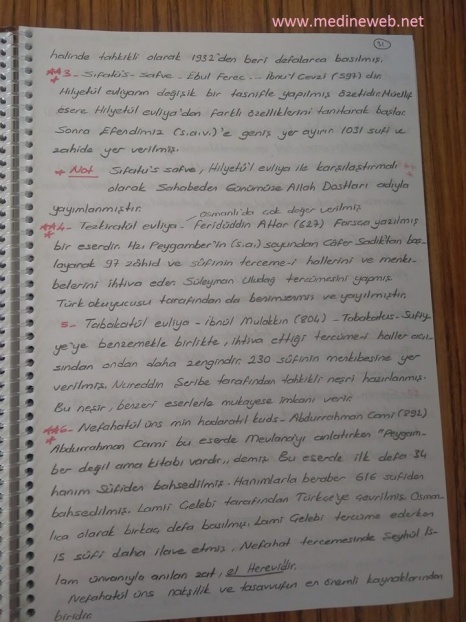 www.medineweb.net
21
halinde tahkikli olarak 1932'den beri defalarca basılmış.
**3- Sıfatü's-safve - Ebul Ferec... İbnü'l Cevzi (597) dir
Hilyetül evliyanın değişik bir tasnifle yapılmış özetidir. Müellif
esere Hilyetül evliya'dan farklı özelliklerini tanıtarak başlar.
Sonra Efendimiz (s.a.v.)'e geniş yer ayırır. 1031 sufi ve
zahide yer verilmiş.
* Not Sıfatu's safve, Hilyetü'l evliya ile karşılaştırmalı
olarak Sahabeden Günümüze Allah Dostları adıyla
yayımlanmıştır.
osmanlı'da çok değer verilmiş
**4- Tezkiratül evliya - Feridüddin Attar (627) Farsça yazılmış
bir eserdir. Hz. Peygamber'in (s.a.) soyundan Cafer Sadık'tan baş-
layarak 97 zâhid ve sûfinin terceme-i hallerini ve menkı-
belerini ihtiva eden Süleyman Uludağ tercümesini yapmış
Türk okuyucusu tarafından da benimsenmiş ve yayılmıştır.
5- Tabakatül evliya - ibnül Mulakkın (804) - Tabakatus-Sufiy-
ye'ye benzemekle birlikte, ihtiva ettiği tercümeri haller açı-
sından ondan daha zengindir. 230 sûfinin menkıbesine yer
verilmiş. Nureddin Şeribe tarafından tahkikli neşri hazırlanmış.
Bu neşir, benzeri eserlerle mukayese imkanı verir.
**6- Nefahatül üns min hadaratil kuds - Abdurrahman Cami (892)
Abdurrahman Cami bu eserde Mevlana'yı anlatırken "Peygam-
ber değil ama kitabı vardır,, demiş. Bu eserde ilk defa 34
hanım Sûfiden bahsedilmiş - Hanımlarla beraber 616 sufiden
bahsedilmiş. Lamii Çelebi tarafından Türkçe'ye çevrilmiş. Osman-
lıca olarak birkaç defa basılmış. Lami Çelebi tercüme ederken
15 sûfi daha ilave etmiş. Nefahat tercemesinde Şeyhül İs-
lam ünvanıyla anılan zat, el Herevidir.
Nefahatül üns nakşilik ve tasavvufun en önemli kaynaklarından
biridir.